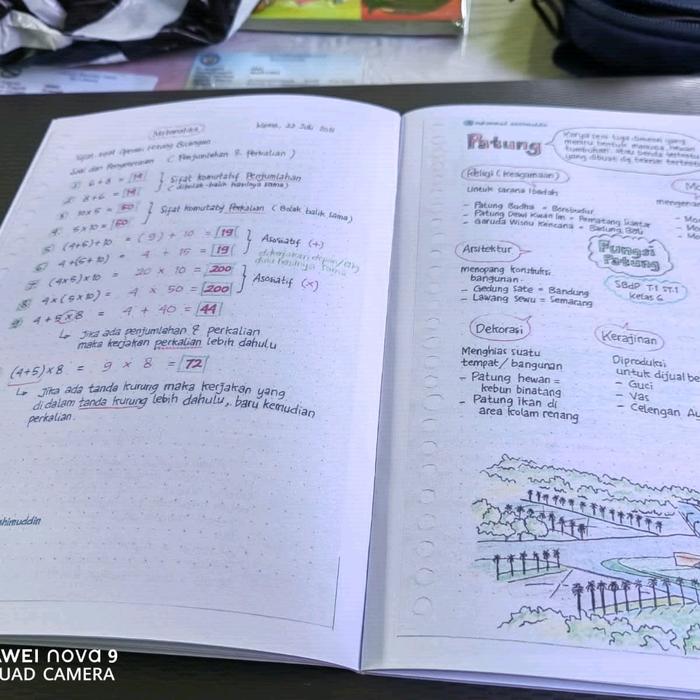 Matematika
Kamis, 22 Juli 2021
Sifat-sifat Operasi Hitung Bilangan
Soal dan Pengerjaan (Penjumlahan & Perkalian)
6 + 8 = 14
8 + 6 = 14
Sifat komutatif Penjumlahan
(dibolak-balik hasilnya sama)
10 x 5 = 50
5 x 10 = 50
Sifat komutatif Perkalian (Bolak balik sama)
(4+5)+10 = (9) + 10 = 19
4+(5+10) = 4 + 15 = 19
Asosiatif (+)
(4x5)x10 = 20 x 10 = 200
4x(5x10) = 4 x 50 = 200
Asosiatif (x)
4+5x8 = 4 + 40 = 44
↳ Jika ada penjumlahan & perkalian
maka kerjakan perkalian lebih dahulu
(4+5)x8 = 9 x 8 = 72
↳ Jika ada tanda kurung maka kerjakan yang
di dalam tanda kurung lebih dahulu, baru kemudian
perkalian.
himuddin
Patung
Karya seni tiga dimensi yang
meniru bentuk manusia, hewan
tumbuhan, atau benda tertentu
yang dibuat dg teknik
Religi (Keagamaan)
untuk sarana ibadah
- Patung Budha = Borobudur
- Patung Dewi Kwan Im = Pematang Siantar
- Garuda Wisnu Kencana = Badung, Bali
Arsitektur
menopang konstruksi
bangunan.
- Gedung Sate = Bandung
- Lawang Sewu = Semarang
Fungsi
Patung
SBdP T.1 ST.1
Kelas 6
Dekorasi
Menghias suatu
tempat / bangunan
- Patung hewan =
kebun binatang
- Patung ikan di
area kolam renang
Kerajinan
Diproduksi
untuk dijual be
- Guci
- Vas
- Celengan
AWEI nova 9
UAD CAMERA